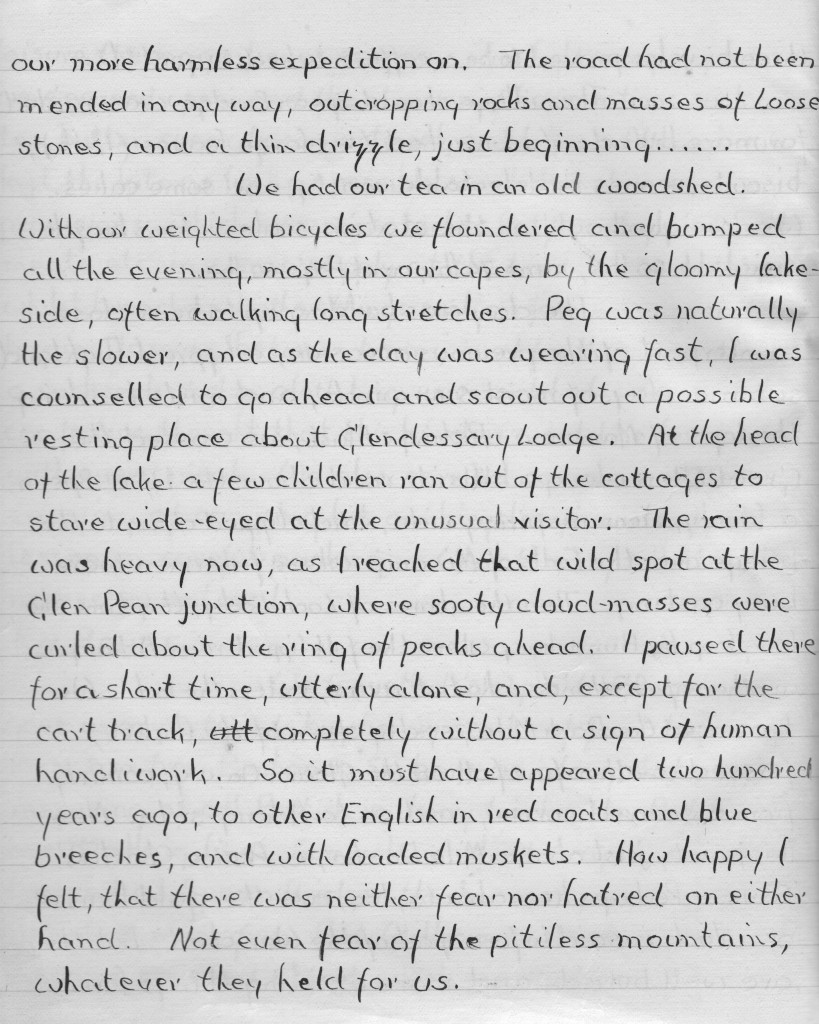 our more harmless expedition on. The road had not been
mended in any way, outcropping rocks and masses of loose
stones, and a thin drizzle, just beginning......
We had our tea in an old woodshed.
With our weighted bicycles we floundered and bumped
all the evening, mostly in our capes, by the gloomy lake-
side, often walking long stretches. Peg was naturally
the slower, and as the day was wearing fast, I was
counselled to go ahead and scout out a possible
resting place about Glendessary Lodge. At the head
of the lake a few children ran out of the cottages to
stare wide-eyed at the unusual visitor. The rain
was heavy now, as I reached that wild spot at the
Glen Pean junction, where sooty cloud-masses were
curled about the ring of peaks ahead. I paused there
for a short time, utterly alone, and, except for the
cart track, utt completely without a sign of human
handiwork. So it must have appeared two hundred
years ago, to other English in red coats and blue
breeches, and with loaded muskets. How happy I
felt, that there was neither fear nor hatred on either
hand. Not even fear of the pitiless mountains,
whatever they held for us.